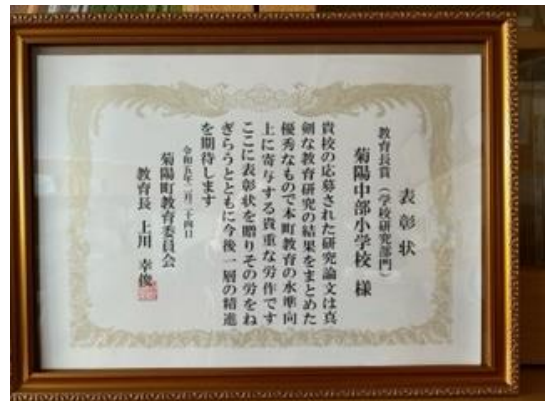 表彰状
教育長賞（学校研究部門）
菊陽中部小学校 様
貴校の応募された研究論文は真
剣な教育研究の結果をまとめた
優秀なもので本町教育の水準向
上に寄与する貴重な労作です
ここに表彰状を贈りその労をね
ぎらうとともに今後一層の精進
を期待します
令和五年二月二十四日
菊陽町教育委員会
教育長 上川 幸俊